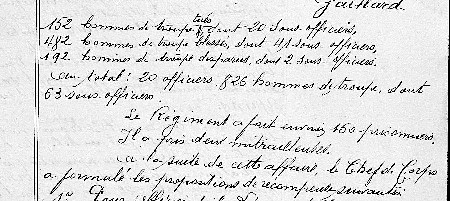 Gaillard.
152 hommes de troupe tués dont 20 sous officiers,
482 hommes de troupe blessés, dont 41 sous officiers,
192 hommes de troupe disparus, dont 2 sous officiers.
Au total : 20 officiers 826 hommes de troupe, dont
63 sous-officiers
Le Régiment a fait environ 160 prisonniers.
Il a pris deux mitrailleuses.
A la suite de cette affaire, le Chef de Corps
a formulé les propositions de récompense suivantes
1°